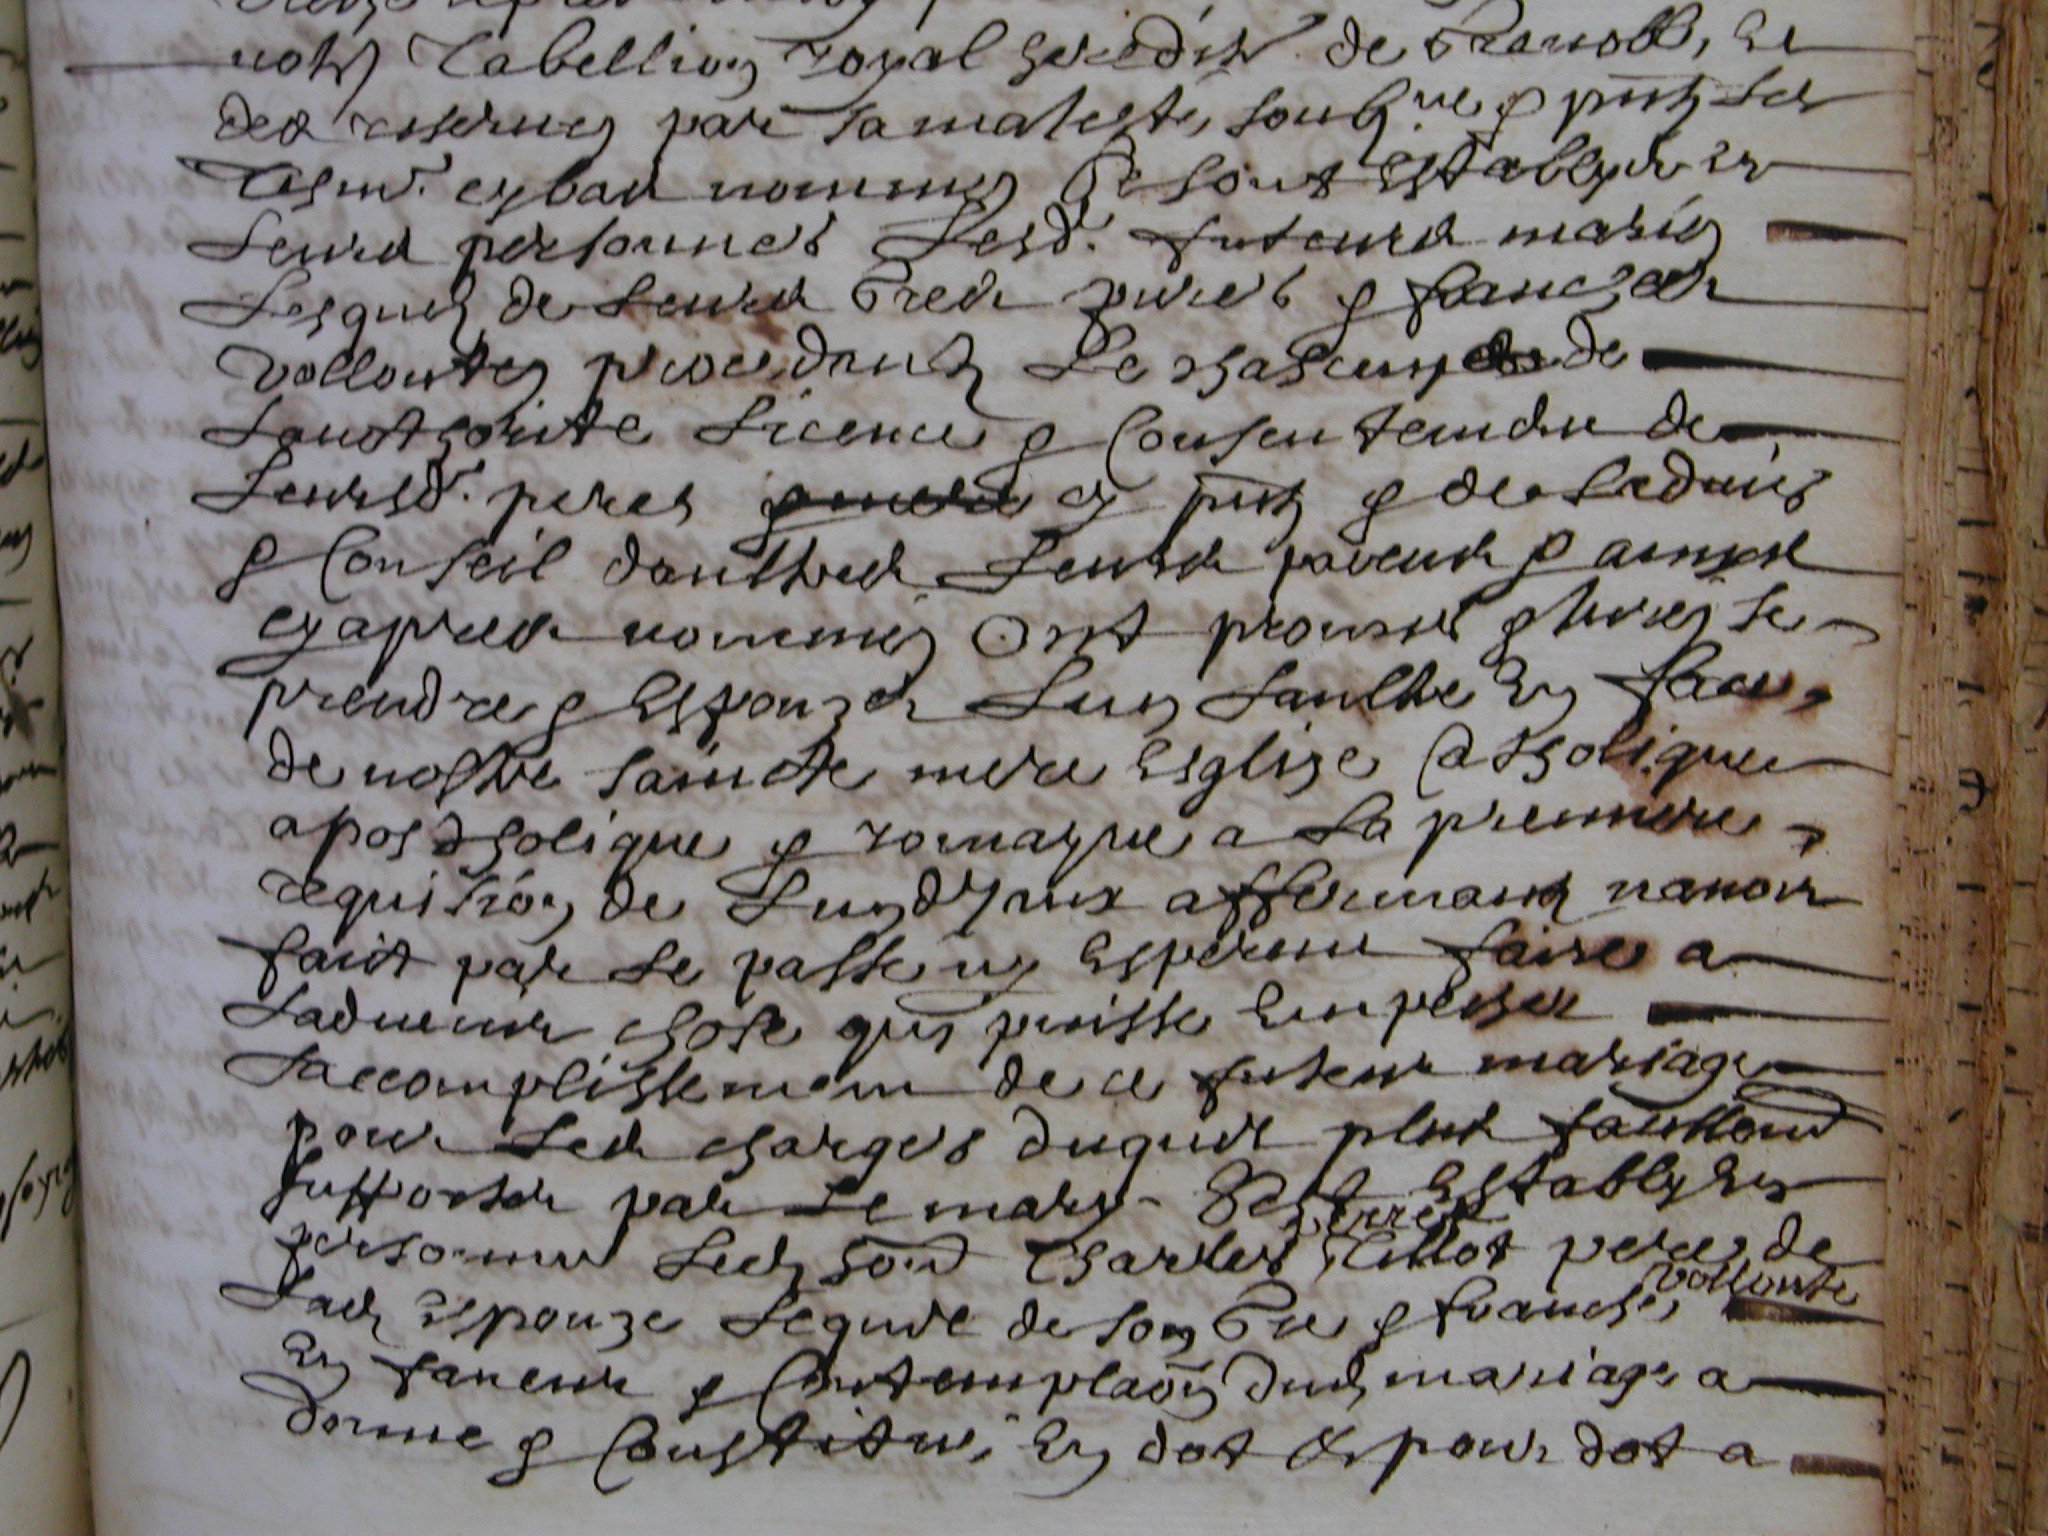 nots Tabellion royal hereditr de Grenoble, et
des reservez par sa majeste, soubzne & pnts les
tesms. cy bas nommez Se sont establys en
leurs personnes Lesd. futeurs mariez
Lesquels de leurs gred purs & franczes
vollontez procedants de chascung de
lauthorite licence & Consentement de
leursd. peres cy pnts & de ladvis
& Conseil daulthres leurs parents & amys
cy apres nommez Ont promis & jurez se
prendre & Espouzer Lung Laulthre En face
de nostre saincte mere Esglize Catholique
apostholique & romayne a La premiere
requision de Lung dyceux affermants navoir
faict par le passe ny Esperent faire a
Ladvenir chose quy puisse Empescher
Laccomplissement de ce futeur mariage
pour Les charges duquel plus facillemt
supporter par le mary Sest Estably En
personne Ledz hond Charles pierre Tillot pere de
Ladz Espouze Lequel de son Gre & franche vollonte
En faveur & Contemplaon dudz mariage a
donne & Constitue En dot & pour dot a